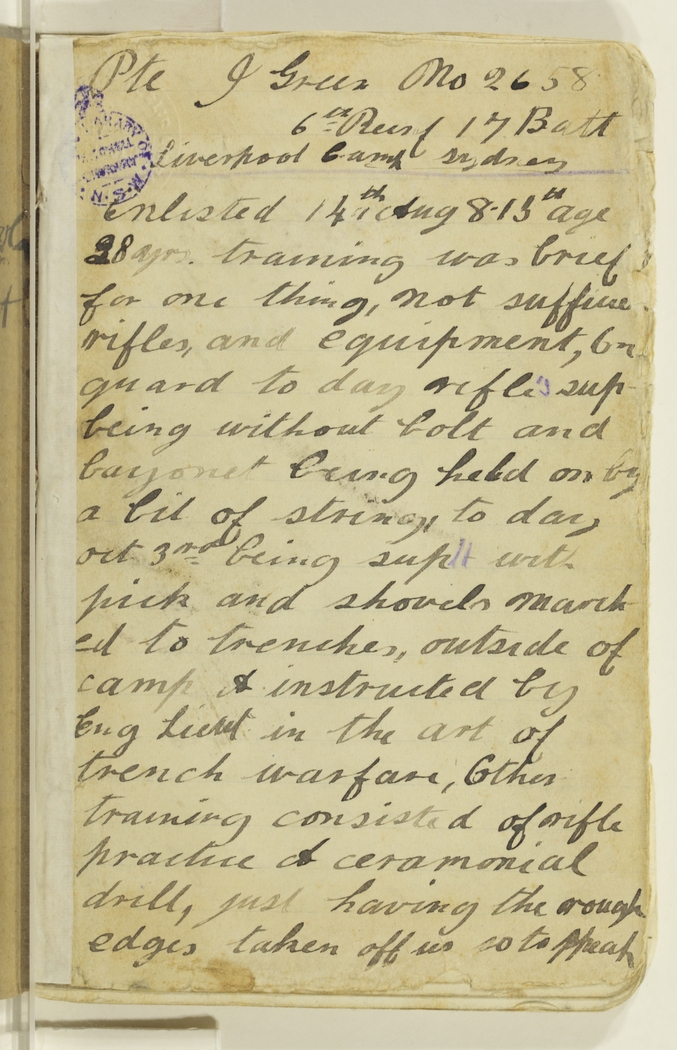 Pte J Green No 2658
6th Reinf 17 Batt
Liverpool Camp Sydney
Enlisted 14th Aug 8-15th age
28 yrs. training was brief
for one thing, not suffice
rifles, and equipment, On
guard to day rifles sup-
being without bolt and
bayonet being held on by
a bit of string, to day
oct 3rd being sup with
pick and shovels march
ed to trenches, outside of
camp & instructed by
Eng Lieut in the art of
trench warfare, Other
training consisted of rifle
practice & ceramonial
drill, just having the rough
edges taken off us so to speak